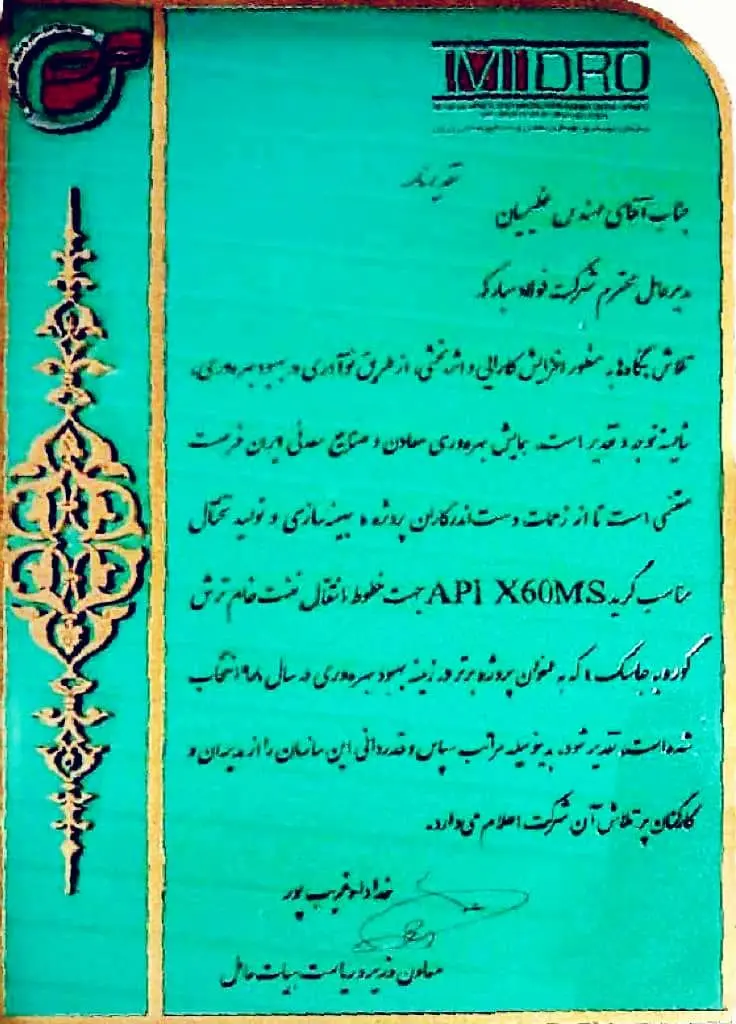 IMIDRO
تقدیرنامه
جناب آقای مهندس عظیمیان
مدیرعامل محترم شرکت فولاد مبارکه
تلاش بنگاه‌ها به منظور افزایش کارایی و اثربخشی، از طریق نوآوری در بهبود بهره‌وری،
شایسته توجه و تقدیر است. همایش بهره‌وری معادن و صنایع معدنی ایران فرصت
مغتنمی است تا از زحمات دست‌اندرکاران پروژه « بهینه‌سازی و تولید تختال
مناسب گرید API X60MS جهت خطوط انتقال نفت خام ترش
گوره به جاسک » که به عنوان پروژه برتر در زمینه بهبود بهره‌وری در سال ۱۳۹۸ انتخاب
شده است، تقدیر شود. بدینوسیله مراتب سپاس و قدردانی این سازمان را از مدیران و
کارکنان پر تلاش آن شرکت اعلام می‌دارد.
خداداد غریب پور
معاون وزیر و ریاست هیات عامل